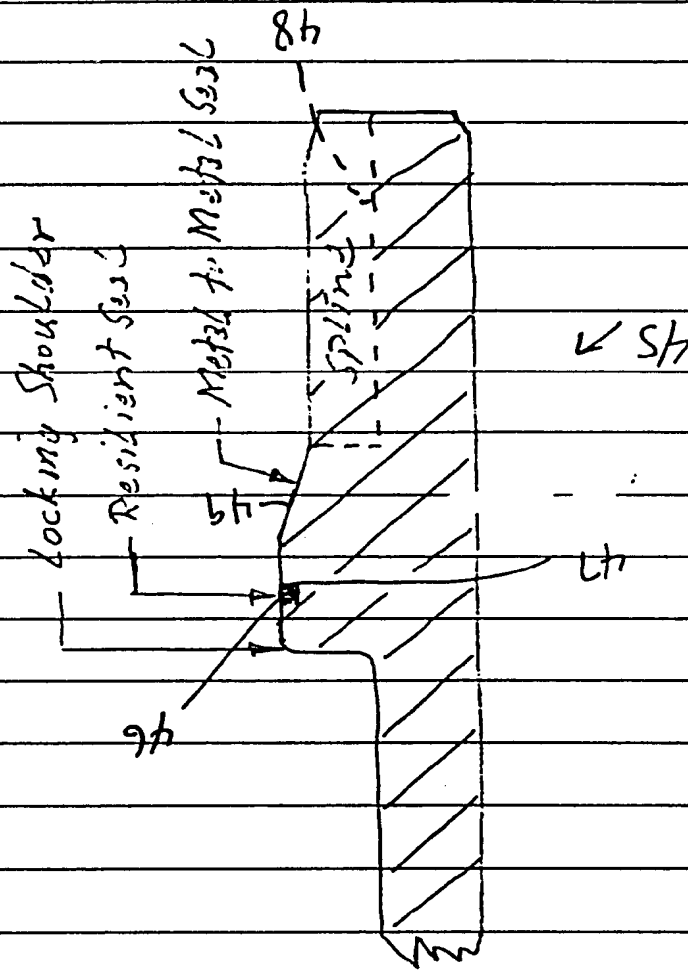 Locking Shoulder
Resilient Seal
Metal to Metal Seal
Spline
48
45
47
46